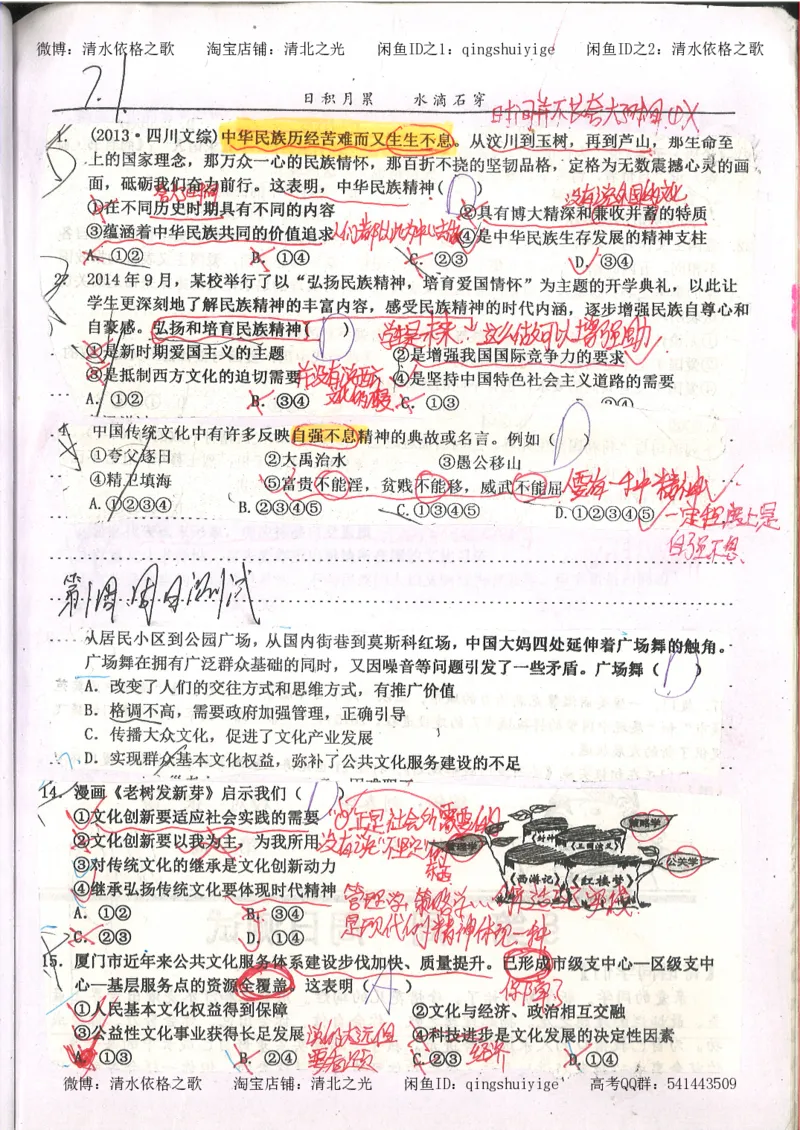 微博：清水依格之歌 淘宝店铺：清北之光 闲鱼ID之1：qingshuiyige 闲鱼ID之2：清水依格之歌
7.1
日积月累 水滴石穿
1. (2013·四川文综)中华民族历经苦难而又生生不息。从汶川到玉树，再到芦山，那生命至
上的国家理念，那万众一心的民族情怀，那百折不挠的坚韧品格，定格为无数震撼心灵的画
面，砥砺我们奋力前行。这表明，中华民族精神( D )
①在不同历史时期具有不同的内容 ②具有博大精深和兼收并蓄的特质
③蕴涵着中华民族共同的价值追求 ④是中华民族生存发展的精神支柱
A. ①② B. ①④ C. ②③ D. ③④
2? 2014年9月，某校举行了以“弘扬民族精神，培育爱国情怀”为主题的开学典礼，以此让
学生更深刻地了解民族精神的丰富内容，感受民族精神的时代内涵，逐步增强民族自尊心和
自豪感。弘扬和培育民族精神( D )
①是新时期爱国主义的主题 ②是增强我国国际竞争力的要求
③是抵制西方文化的迫切需要 ④是坚持中国特色社会主义道路的需要
A. ①② B. ③④ C. ①③ D. ②④
4 中国传统文化中有许多反映自强不息精神的典故或名言。例如( D )
①夸父逐日 ②大禹治水 ③愚公移山
④精卫填海 ⑤富贵不能淫，贫贱不能移，威武不能屈 需有一种精神
A.①②③④ B.②③④⑤ C.①③④⑤ D.①②③④⑤ 一定程度上是
自强不息
第1周周日测试
从居民小区到公园广场，从国内街巷到莫斯科红场，中国大妈四处延伸着广场舞的触角。
广场舞在拥有广泛群众基础的同时，又因噪音等问题引发了一些矛盾。广场舞( D )
A．改变了人们的交往方式和思维方式，有推广价值
B．格调不高，需要政府加强管理，正确引导
C．传播大众文化，促进了文化产业发展
D．实现群众基本文化权益，弥补了公共文化服务建设的不足
14．漫画《老树发新芽》启示我们( D )
①文化创新要适应社会实践的需要
②文化创新要以我为主，为我所用
③对传统文化的继承是文化创新动力
④继承弘扬传统文化要体现时代精神
A. ①② B. ③④
C. ②③ D. ①④
管理学 《封神》 《三国演义》 策略学
《西游记》 《红楼梦》 公关学
15．厦门市近年来公共文化服务体系建设步伐加快、质量提升。已形成市级支中心—区级支中
心—基层服务点的资源全覆盖。这表明( A ) 保障了
①人民基本文化权益得到保障 ②文化与经济、政治相互交融
③公益性文化事业获得长足发展 ④科技进步是文化发展的决定性因素
A. ①③ B. ②④ C. ②③ 经济 D. ①④
微博：清水依格之歌 淘宝店铺：清北之光 闲鱼ID：qingshuiyige 高考QQ群：541443509